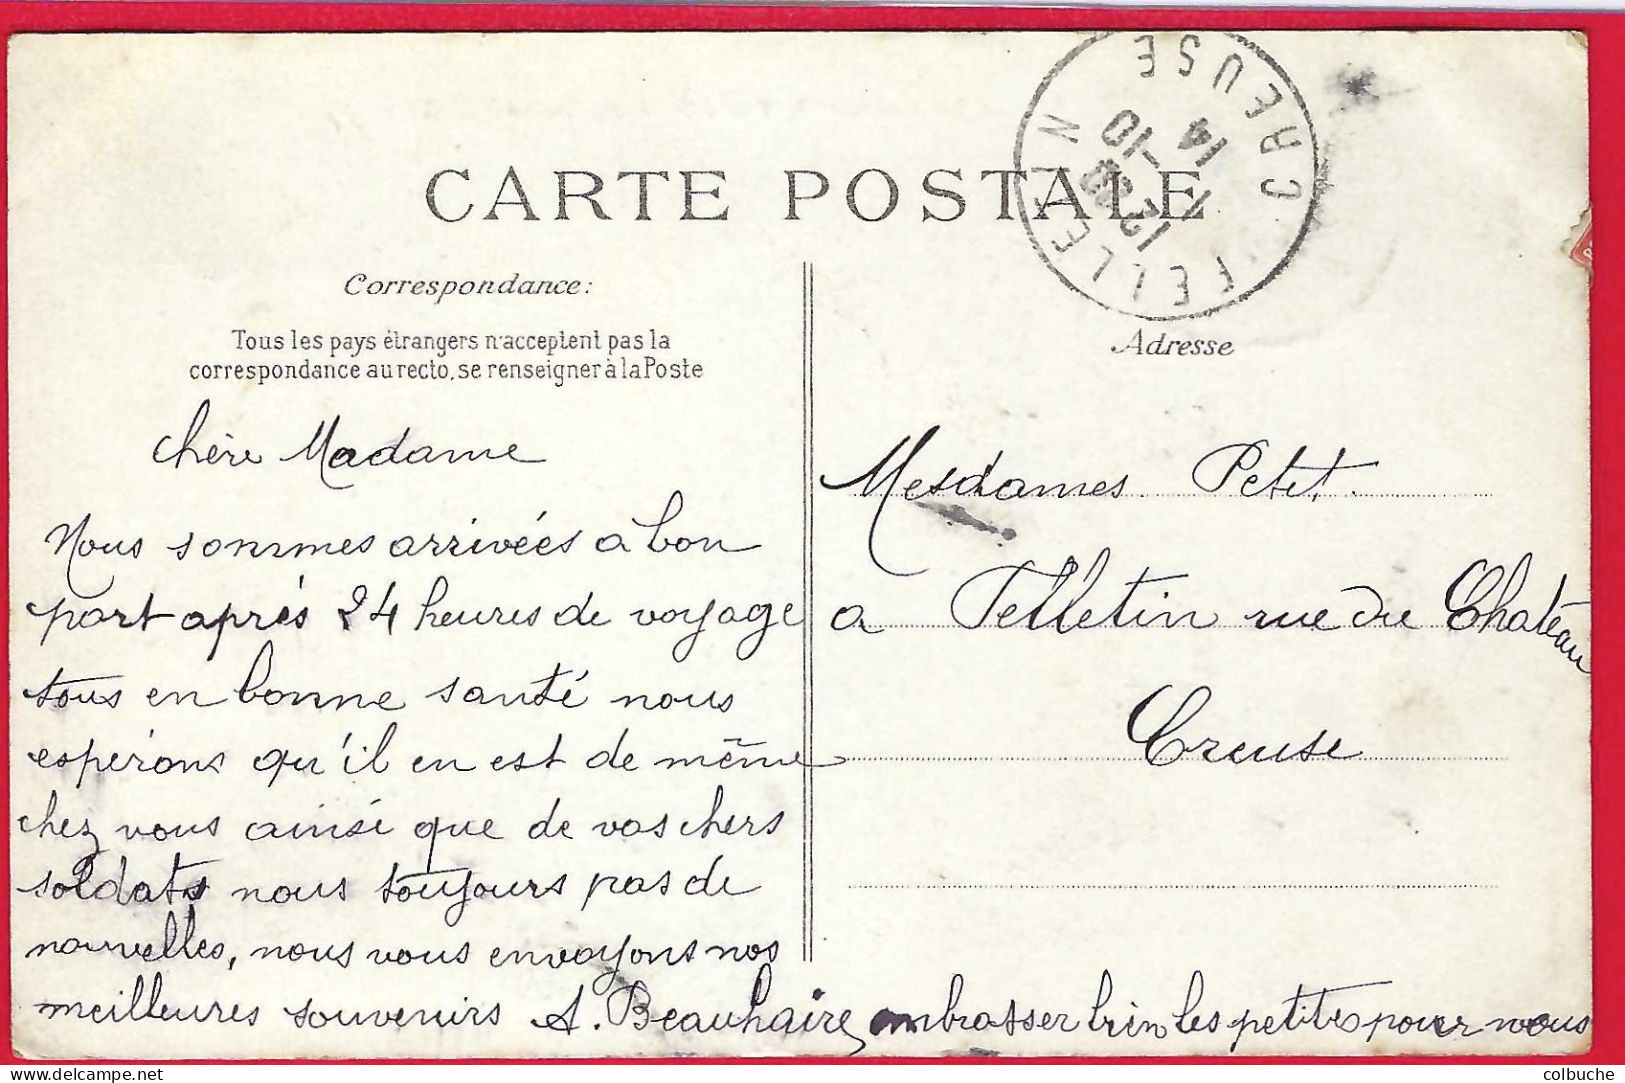 CARTE POSTALE
FELLETIN
CREUSE
12
1-10
14
Correspondance:
Tous les pays étrangers n'acceptent pas la
correspondance au recto, se renseigner à la Poste
chère Madame
Nous sommes arrivées a bon
port après 24 heures de voyage
tous en bonne santé nous
espérons qu'il en est de même
chez vous ainsi que de vos chers
soldats nous toujours pas de
nouvelles, nous vous envoyons nos
meilleures souvenirs A. Beauhaire embrasser bien les petites pour nous
Adresse
Mesdames Petit
a Felletin rue du Château
Creuse
colbuche